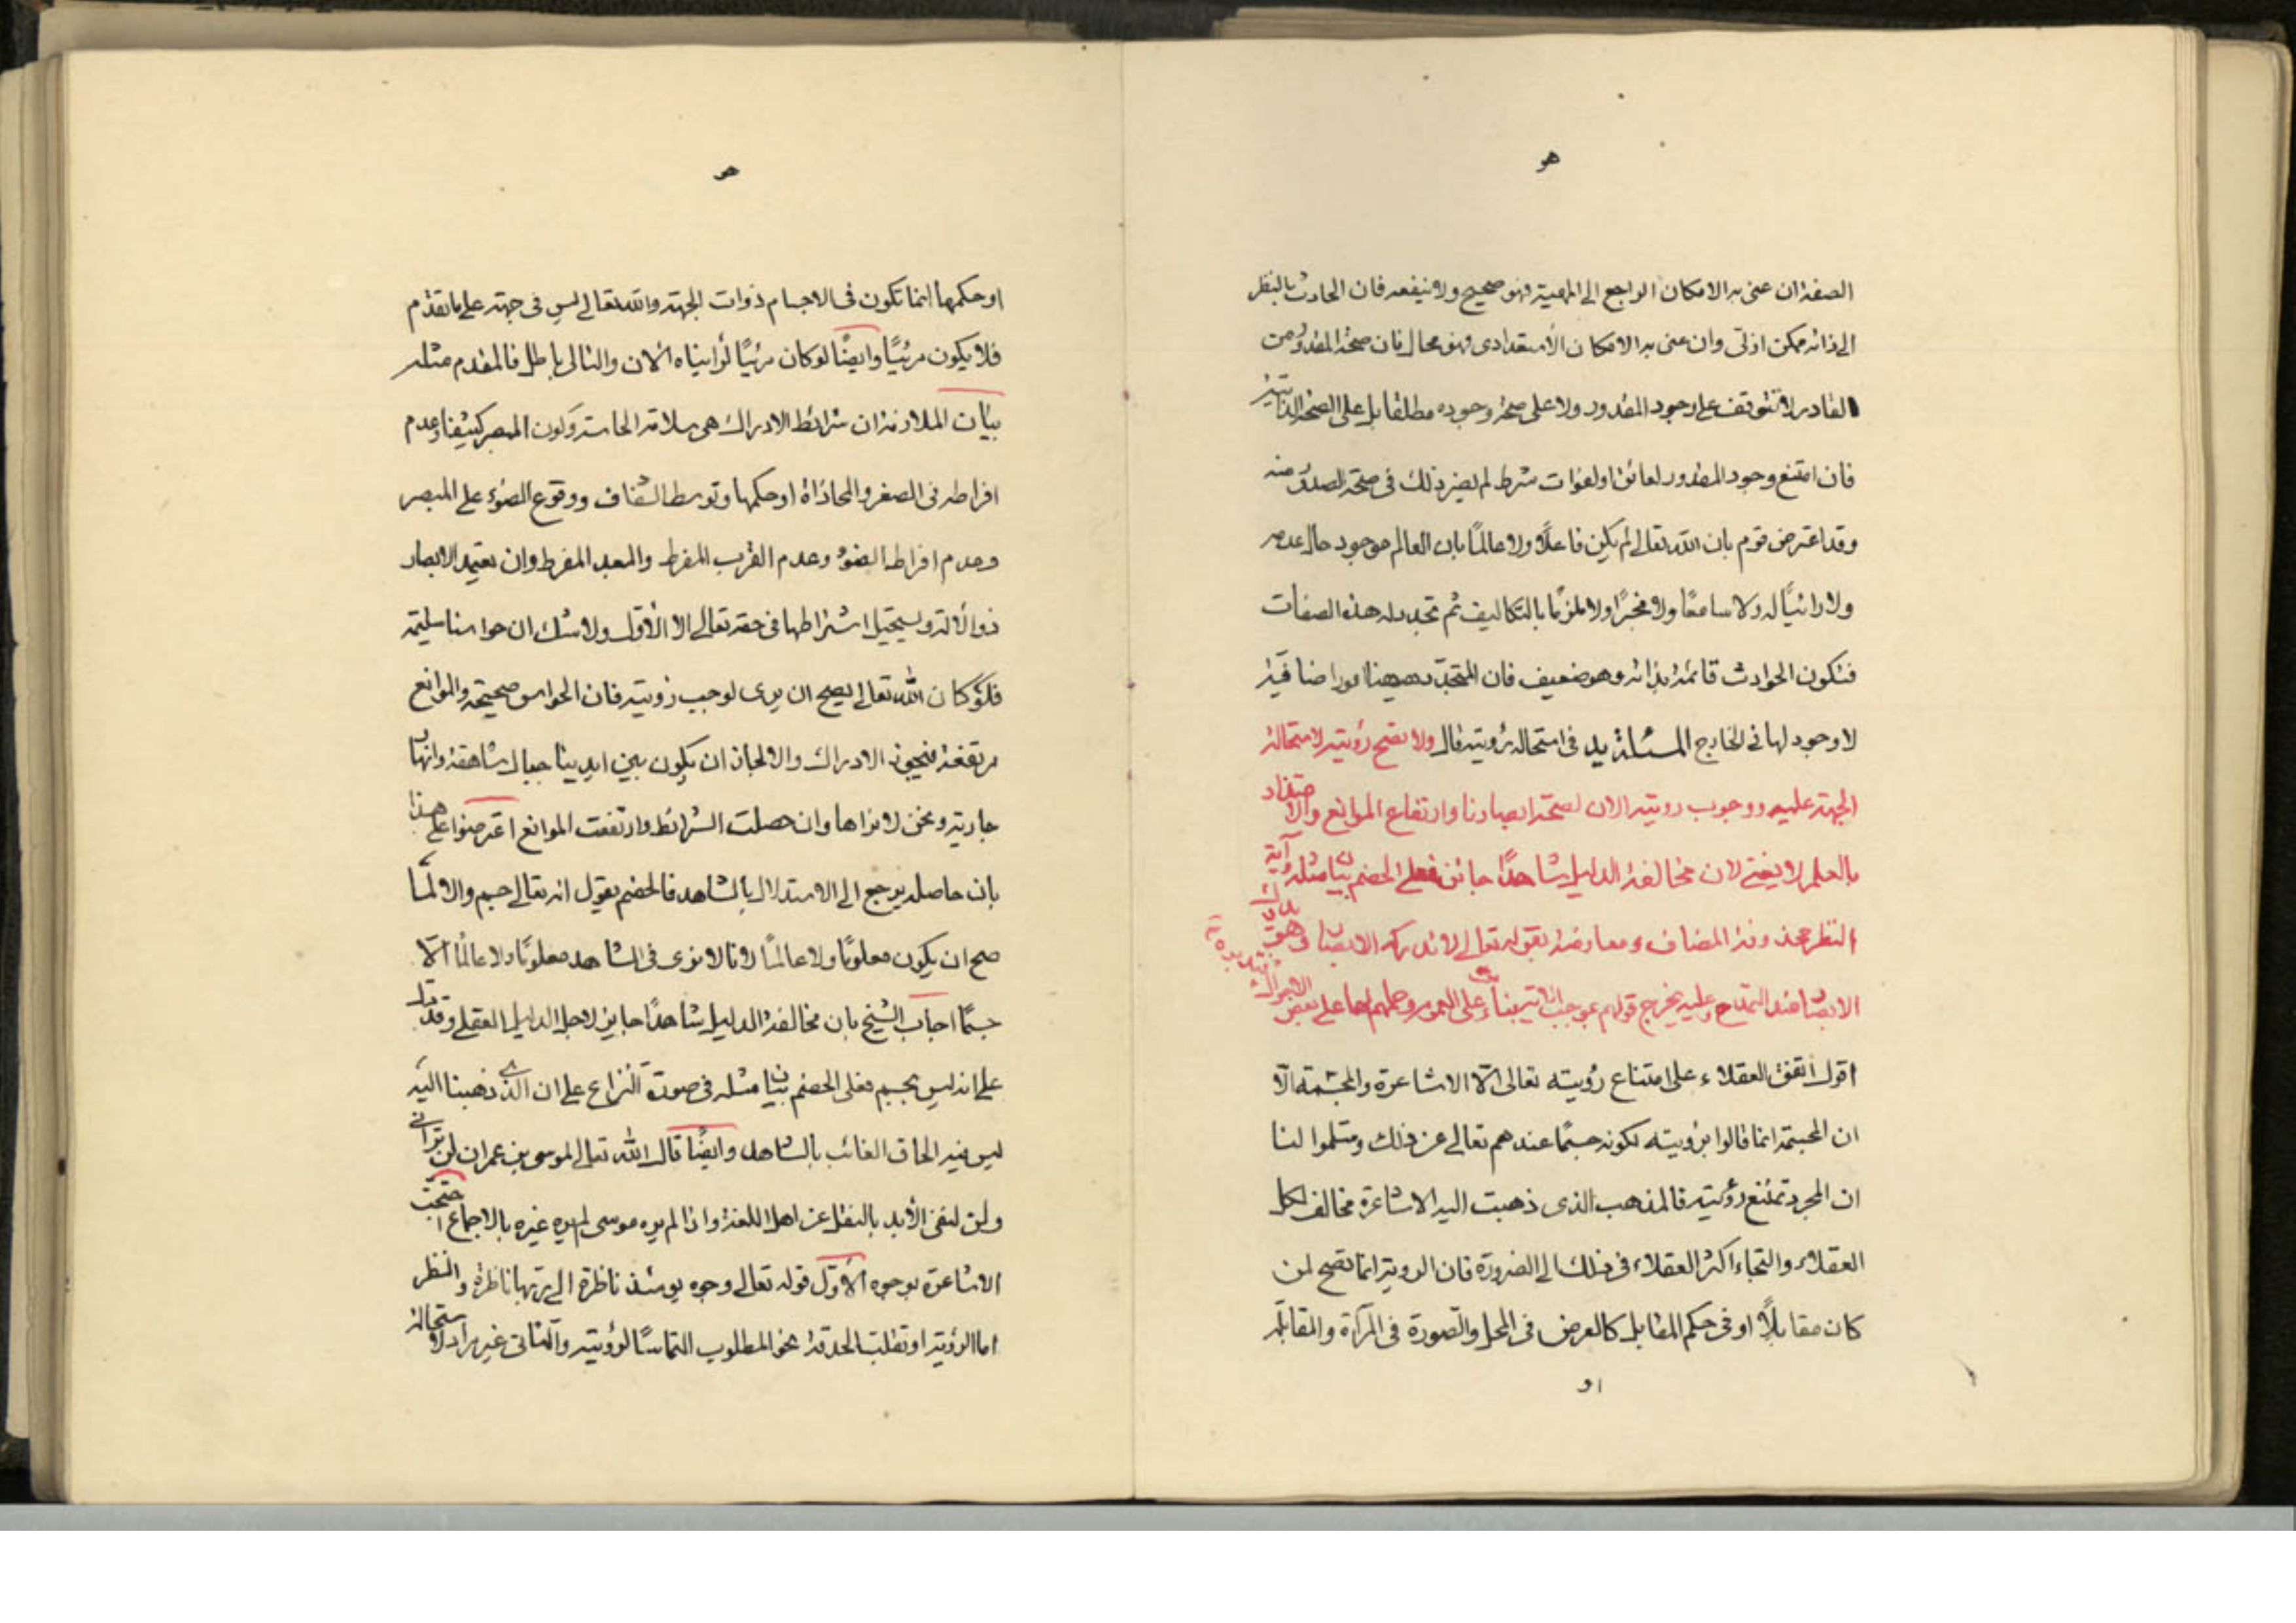 هو
الصفة ان عنى به الامكان الراجع الى المهية فهو صحيح ولا ينفعه فان الحادث بالنظر
الى ذاته ممكن ازلى وان عنى به الامكان الاستعدادى فهو محال فان صحة المقدور من
القادر لا تتوقف على وجود المقدور ولا على صحة وجوده مطلقا بل على الصحة الذاتية
فان امتنع وجود المقدور لعائق او لفوات شرط لم يضر ذلك فى صحة الصدور منه
وقد اعترض قوم بان الله تعالى لم يكن فاعلًا ولا عالمًا بان العالم موجود حال عدمه
ولا رائيًا له ولا سامعًا ولا مخبرًا ولا ملزمًا بالتكاليف ثم تجدد له هذه الصفات
فتكون الحوادث قائمة بذاته وهو ضعيف فان المتجدد ههنا امور اضافية
لا وجود لها فى الخارج المسئلة يد فى استحالة رؤيته قال ولا تصح رؤيته لاستحالة
الجهة عليه ووجوب رويته الان لصحة ابصارنا وارتفاع الموانع والاعتضاد
بالعلم لا يغنى لان مخالفة الدليل شاهدًا جائز فعلى الخصم بيان مثله وآية
النظر محذوفة المضاف ومعارضة بقوله تعالى لا تدركه الابصار وهو يدرك
الابصار عند التمدح وعليه يخرج قولهم بموجب الاية بناء على العموم وحملهم لها على بعض
اقول اتفق العقلاء على امتناع رؤيته تعالى الّا الاشاعرة والمجسمة الّا
ان المجسمة انما قالوا برؤيته لكونه جسمًا عندهم تعالى عن ذلك وسلموا لنا
ان المجرد تمتنع رؤيته فالمذهب الذى ذهبت اليه الاشاعرة مخالف لكل
العقلاء والتجاء اكثر العقلاء فى ذلك الى الضرورة فان الروية انما تصح لمن
كان مقابلًا او فى حكم المقابل كالعرض فى المحل والصورة فى المرآة والمقابلة
او
هو
او حكمها انما تكون فى الاجسام ذوات الجهة والله تعالى ليس فى جهة على ما تقدم
فلا يكون مرئيًا وايضًا لو كان مرئيًا لرأيناه الان والتالى باطل فالمقدم مثله
بيان الملازمة ان شرائط الادراك هى سلامة الحاسة وكون المبصر كثيفا وعدم
افراطه فى الصغر والمحاذاة او حكمها وتوسط الشفاف ووقوع الضوء على المبصر
وعدم افراط الضوء وعدم القرب المفرط والبعد المفرط وان يتعمد الابصار
ذو الآلة ويستحيل اشتراطها فى حقه تعالى الا الأوّل ولا شك ان حواسنا سليمة
فلو كان الله تعالى يصح ان يرى لوجب رؤيته فان الحواس صحيحة والموانع
مرتفعة فيجب الادراك والا لجاز ان يكون بين ايدينا جبال شاهقة وانهار
جارية ونحن لا نراها وان حصلت الشرائط وارتفعت الموانع اعترضوا على هذا
بان حاصله يرجع الى الاستدلال بالشاهد فالخصم يقول انه تعالى جسم والا لما
صح ان يكون معلومًا ولا عالمًا لانا لا نرى فى الشاهد معلومًا ولا عالمًا الّا
جسمًا اجاب الشيخ بان مخالفة الدليل شاهدًا جايز لاجل الدليل العقلى وقد دل
على انه ليس بجسم فعلى الخصم بيان مثله فى صورة النزاع على ان الذى ذهبنا اليه
ليس فيه الحاق الغائب بالشاهد وايضًا قال الله تعالى لموسى بن عمران لن ترانى
ولن لنفى الأبد بالنقل عن اهل اللغة واذا لم يره موسى لم يره غيره بالاجماع احتجت
الاشاعرة بوجوه الأوّل قوله تعالى وجوه يومئذ ناظرة الى ربها ناظرة والنظر
اما الرؤية او تقليب الحدقة نحو المطلوب التماسًا لرؤيته والثانى غير مراد لاستحالة